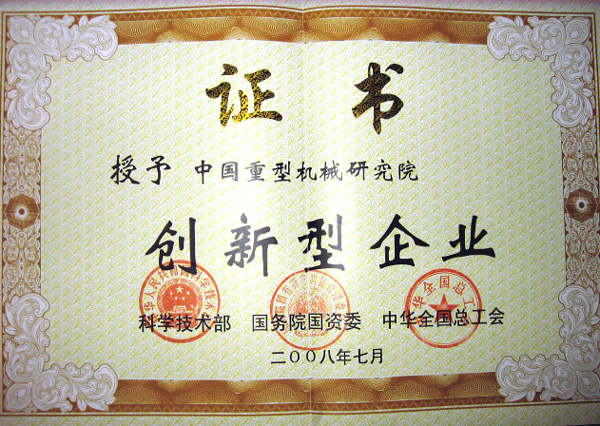 证书
授予 中国重型机械研究院
创新型企业
科学技术部 国务院国资委 中华全国总工会
二〇〇八年七月